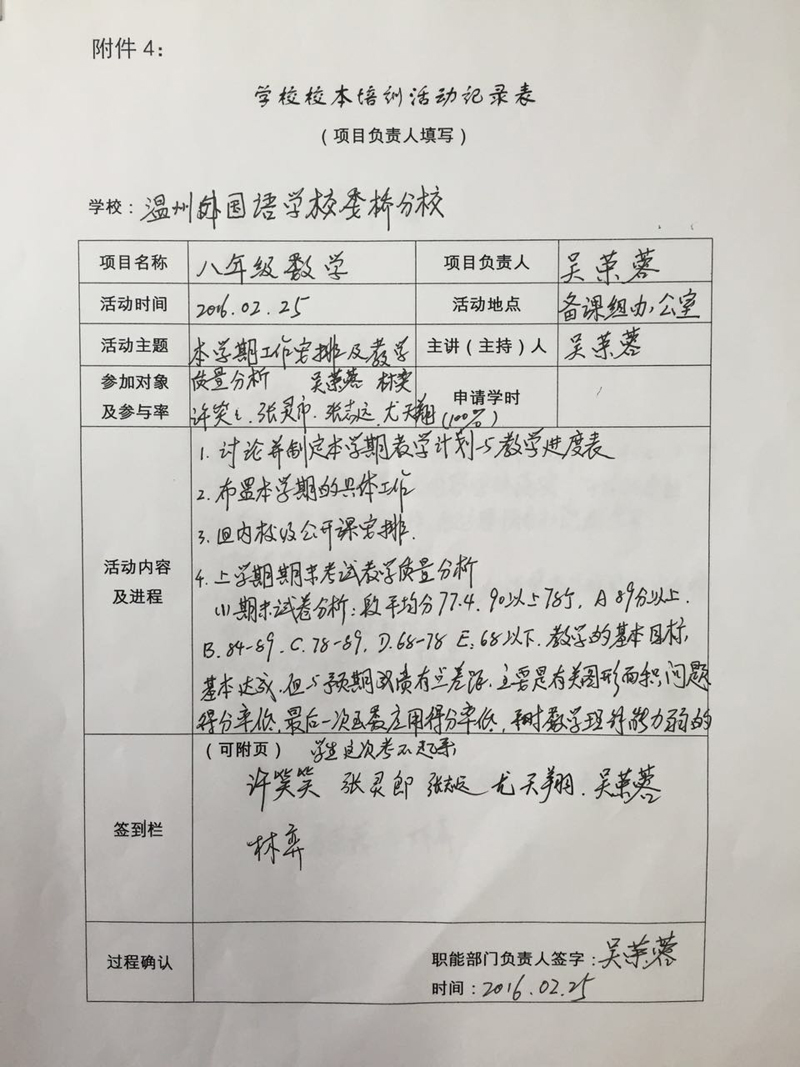 附件4：
学校校本培训活动记录表
（项目负责人填写）
学校：温州外国语学校娄桥分校
项目名称 八年级数学 项目负责人 吴荣蓉
活动时间 2016.02.25 活动地点 备课组办公室
活动主题 本学期工作安排及教学 主讲（主持）人 吴荣蓉
参加对象 质量分析 吴荣蓉 林奕
及参与率 许笑笑、张灵郎、张志远、尤天翔(100%) 申请学时
1. 讨论并制定本学期教学计划与教学进度表
2. 布置本学期的具体工作
3. 组内校级公开课安排.
活动内容
及进程
4. 上学期期末考试教学质量分析
(1) 期末试卷分析：段平均分77.4. 90以上78个, A 89分以上.
B. 84-89. C. 78-89. D. 68-78 E: 68以下. 教学的基本目标,
基本达成. 但与预期成绩有点差距. 主要是有关图形面积问题
得分率低, 最后一次函数应用得分率低, 平时数学理解能力弱的
（可附页） 学生这次考不起来;
签到栏
许笑笑 张灵郎 张志远 尤天翔. 吴荣蓉
林奕
过程确认
职能部门负责人签字：吴荣蓉
时间：2016.02.25